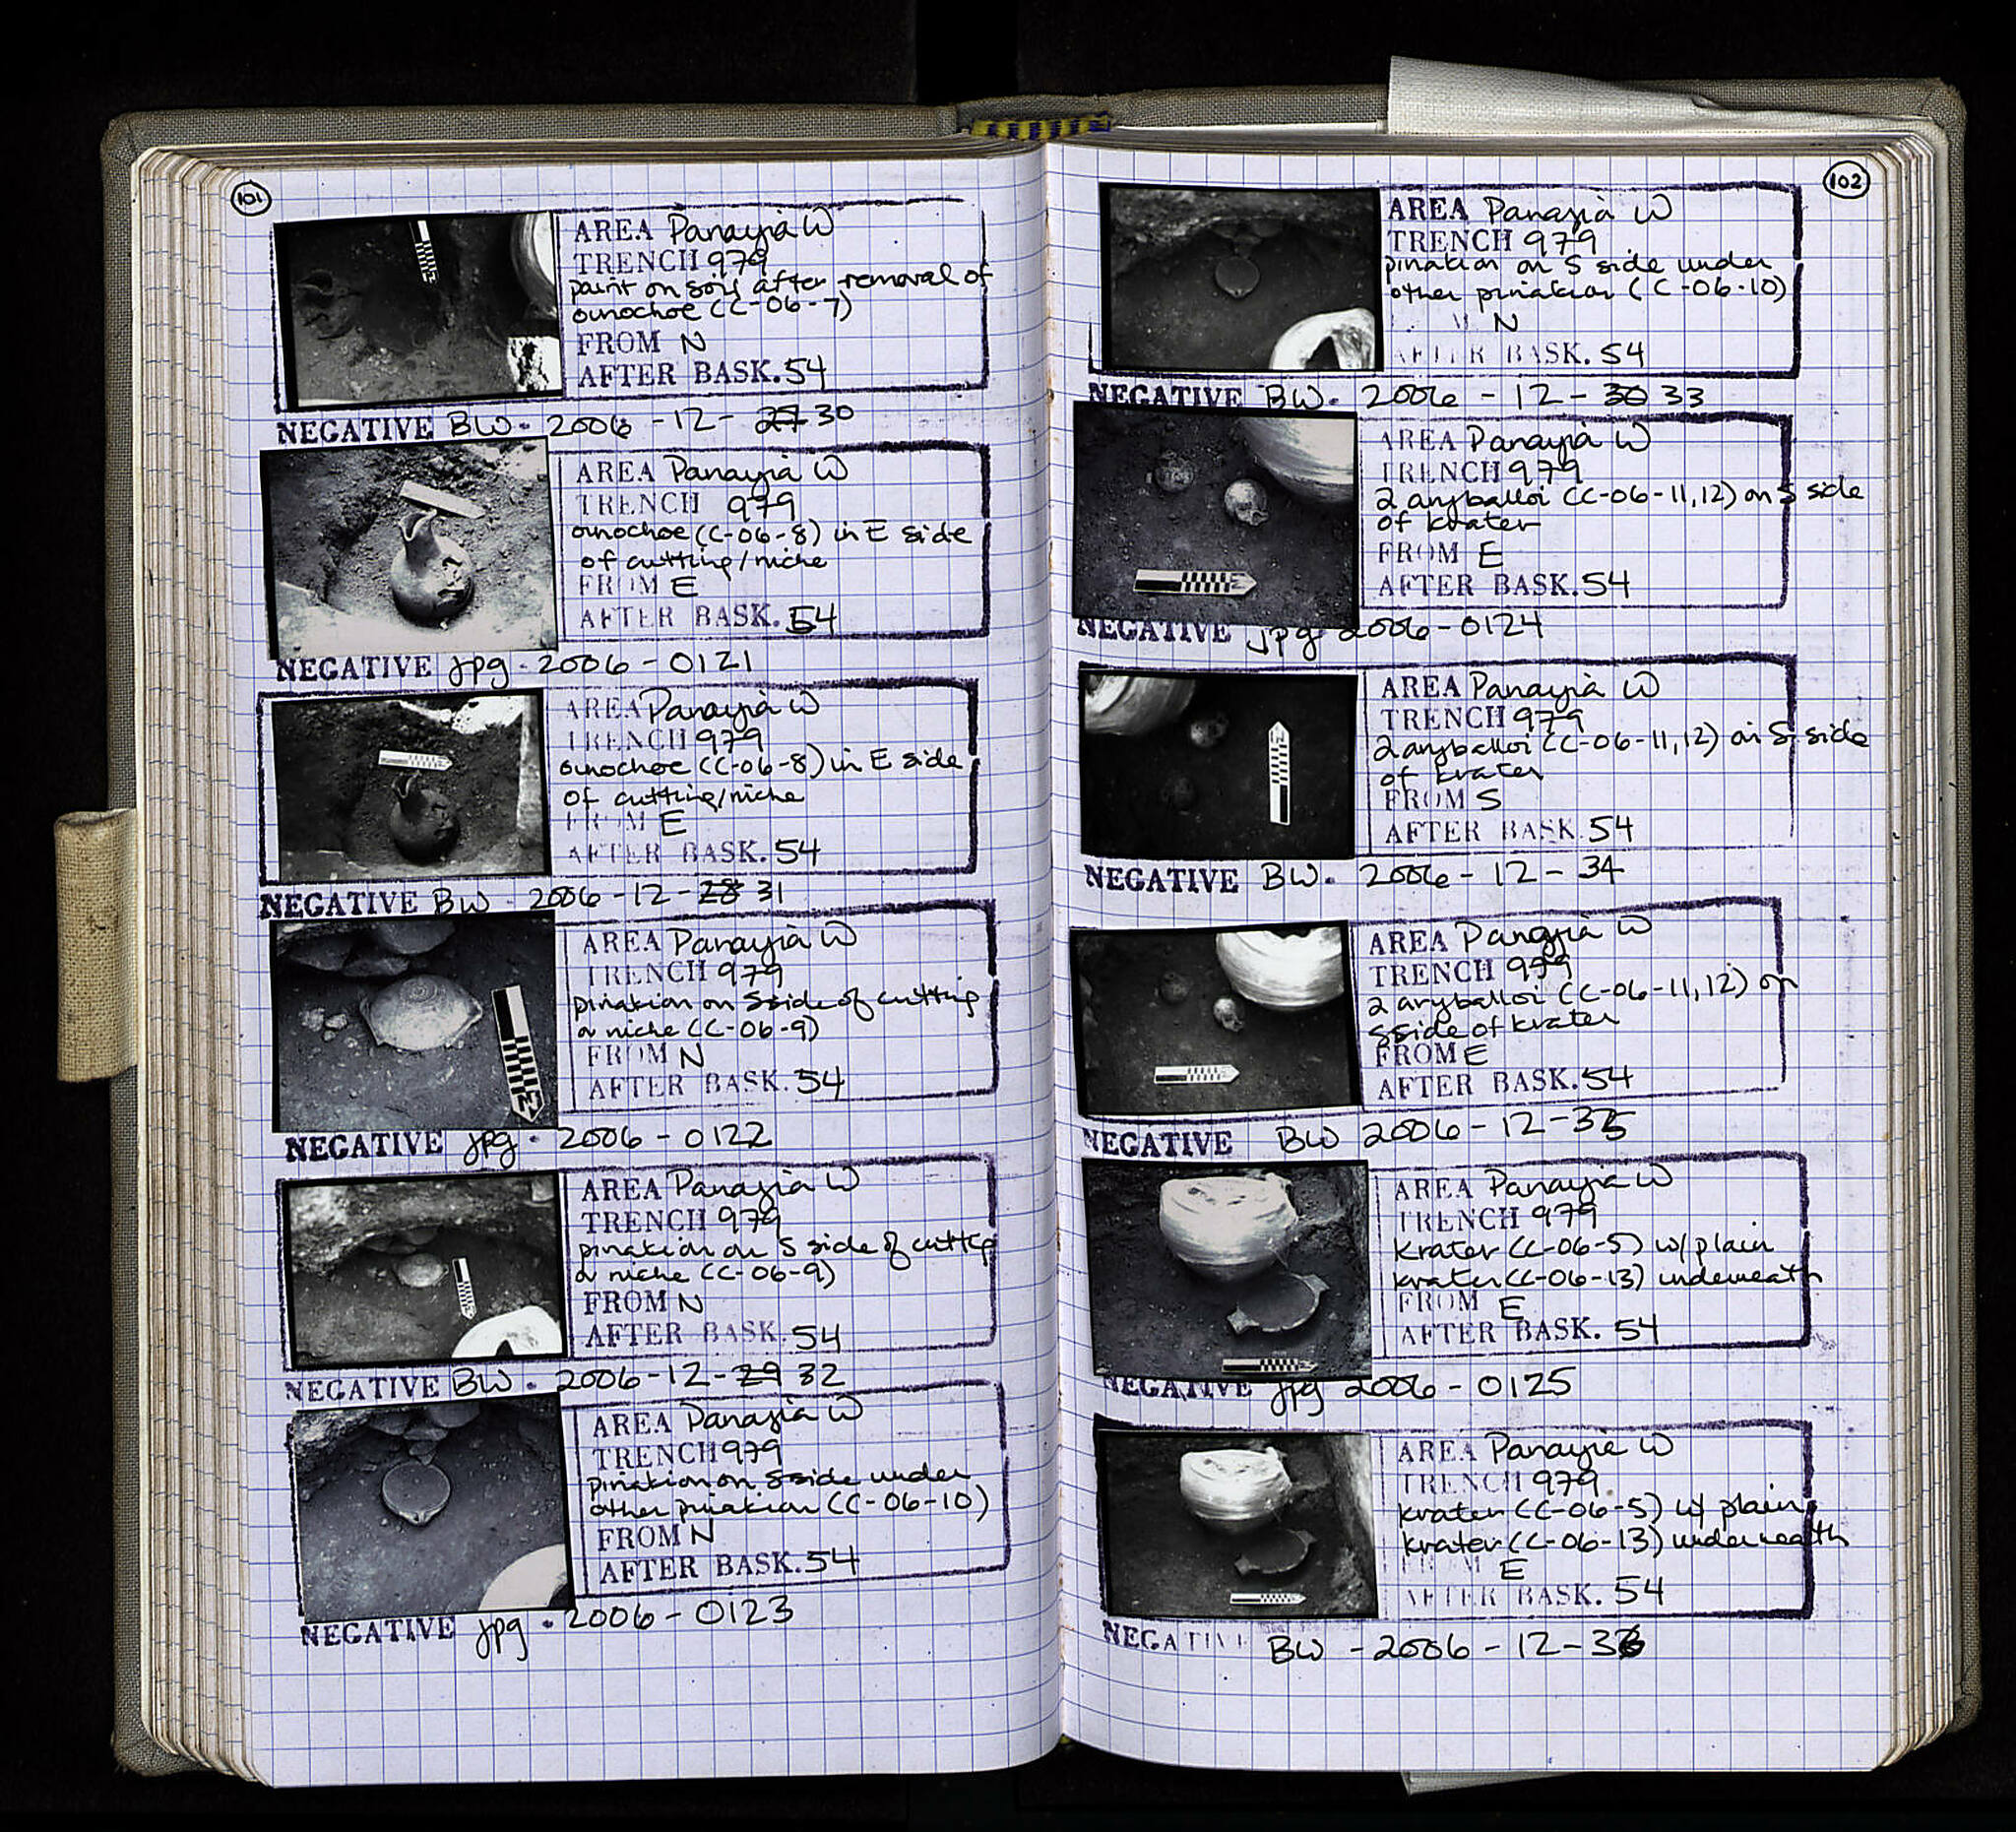 101
AREA Panayia W
TRENCH 979
paint on soil after removal of
oinochoe (C-06-7)
FROM N
AFTER BASK. 54
NEGATIVE BW - 2006 - 12 - 27 30
AREA Panayia W
TRENCH 979
oinochoe (C-06-8) in E side
of cutting/niche
FROM E
AFTER BASK. 54
NEGATIVE jpg - 2006 - 0121
AREA Panayia W
TRENCH 979
oinochoe (C-06-8) in E side
of cutting/niche
FROM E
AFTER BASK. 54
NEGATIVE BW - 2006 - 12 - 28 31
AREA Panayia W
TRENCH 979
pinakion on S side of cutting
or niche (C-06-9)
FROM N
AFTER BASK. 54
NEGATIVE jpg - 2006 - 0122
AREA Panayia W
TRENCH 979
pinakion on S side of cutting
or niche (C-06-9)
FROM N
AFTER BASK. 54
NEGATIVE BW - 2006 - 12 - 29 32
AREA Panayia W
TRENCH 979
pinakion on S side under
other pinakion (C-06-10)
FROM N
AFTER BASK. 54
NEGATIVE jpg - 2006 - 0123
102
AREA Panayia W
TRENCH 979
pinakion on S side under
other pinakion (C-06-10)
N
AFTER BASK. 54
NEGATIVE BW - 2006 - 12 - 30 33
AREA Panayia W
TRENCH 979
2 aryballoi (C-06-11,12) on S side
of krater
FROM E
AFTER BASK. 54
NEGATIVE jpg 2006 - 0124
AREA Panayia W
TRENCH 979
2 aryballoi (C-06-11,12) on S side
of krater
FROM S
AFTER BASK. 54
NEGATIVE BW - 2006 - 12 - 34
AREA Panayia W
TRENCH 979
2 aryballoi (C-06-11,12) on
S side of krater
FROM E
AFTER BASK. 54
NEGATIVE BW 2006 - 12 - 35
AREA Panayia W
TRENCH 979
krater (C-06-5) w/ plain
krater (C-06-13) underneath
FROM E
AFTER BASK. 54
NEGATIVE jpg 2006 - 0125
AREA Panayia W
TRENCH 979
krater (C-06-5) w/ plain
krater (C-06-13) underneath
FROM E
AFTER BASK. 54
NEGATIVE BW - 2006 - 12 - 36